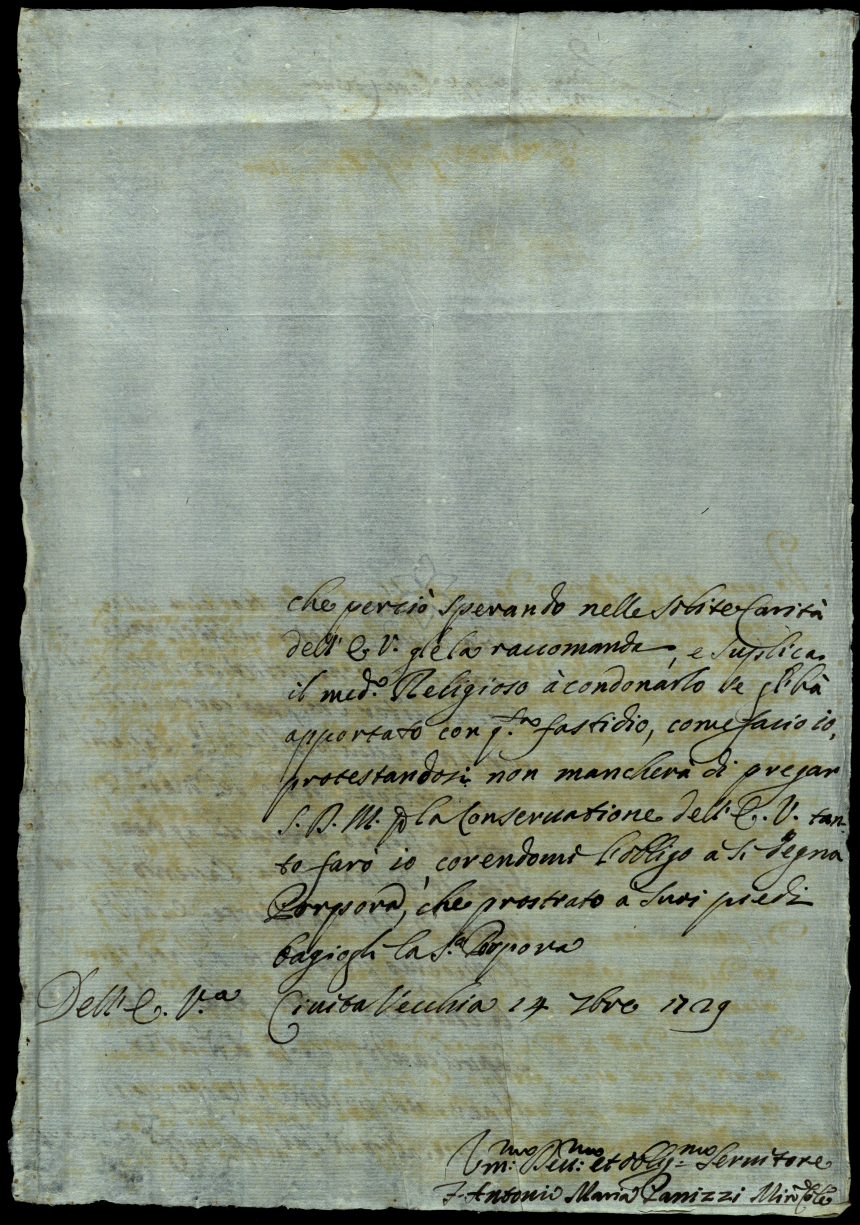 che perciò sperando nelle solite Carità
dell' E. V. gle la raccomanda, e suplica
il med.º Religioso à condonarlo se gl' hà
apportato con q.sto fastidio, come facio io,
protestandosi non mancherà di pregar
S. D. M. p la Conseruatione dell' E. V. tan-
to farò io, corendomi l'obligo a sì degna
Porpora, che prostrato a suoi piedi
bagiogli la S.ra Porpora
Dell' E. V.a Ciuita Vecchia 14 7bre 1729
Um:mo Deu:mo et obbg:mo Seruitore
F. Antonio Maria Panizzi